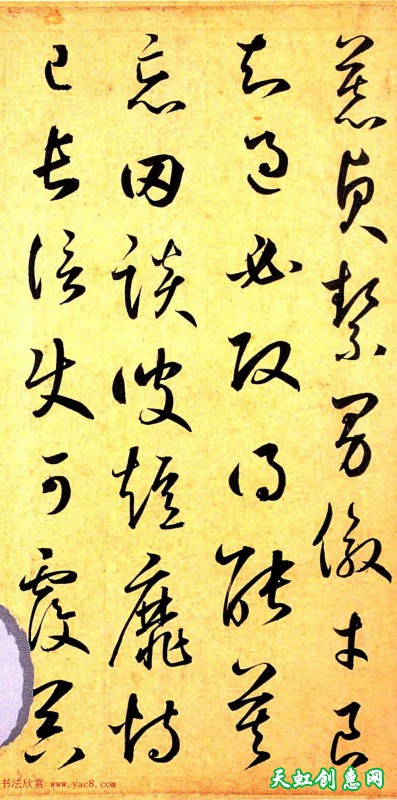 慕貞絜男傚才良
知過必改得能莫
忘罔談彼短靡恃
己長信使可覆器
书法欣赏 www.yac8.com
天虹创惠网